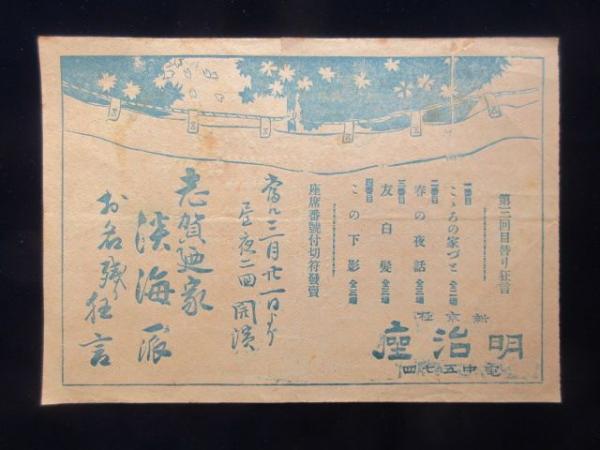 第三回目替り狂言
一番目 こゝろの家づと 全二場
二番目 春の夜話 全三場
三番目 友白髪 全三場
四番目 この下影 全三場
座席番號付切符發賣
新京極
明治座
電中五七四
當ル三月廿一日より
昼夜二回開演
志賀廼家
淡海一派
お名残り狂言